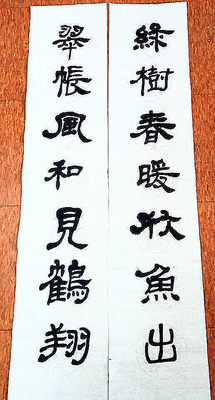 綠樹春暖魚出
翠帳風和見鶴翔